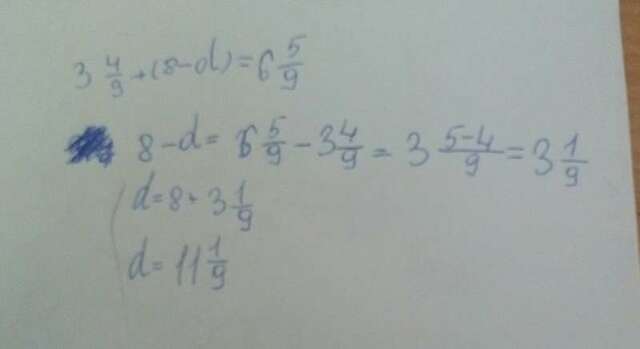 3 4/9 + (8 - d) = 6 5/9
8 - d = 6 5/9 - 3 4/9 = 3 5-4/9 = 3 1/9
d = 8 + 3 1/9
d = 11 1/9